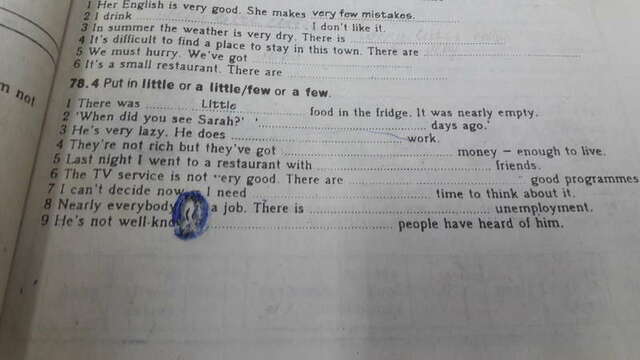 1 Her English is very good. She makes very few mistakes.
2 I drink ........ . I don't like it.
3 In summer the weather is very dry. There is ........
4 It's difficult to find a place to stay in this town. There are ........
5 We must hurry. We've got ........
6 It's a small restaurant. There are ........
m not
78.4 Put in little or a little/few or a few.
1 There was ........ Little ........ food in the fridge. It was nearly empty.
2 'When did you see Sarah?' '........ days ago.'
3 He's very lazy. He does ........ work.
4 They're not rich but they've got ........ money – enough to live.
5 Last night I went to a restaurant with ........ friends.
6 The TV service is not very good. There are ........ good programmes
7 I can't decide now. I need ........ time to think about it.
8 Nearly everybody a job. There is ........ unemployment.
9 He's not well-kno ........ people have heard of him.